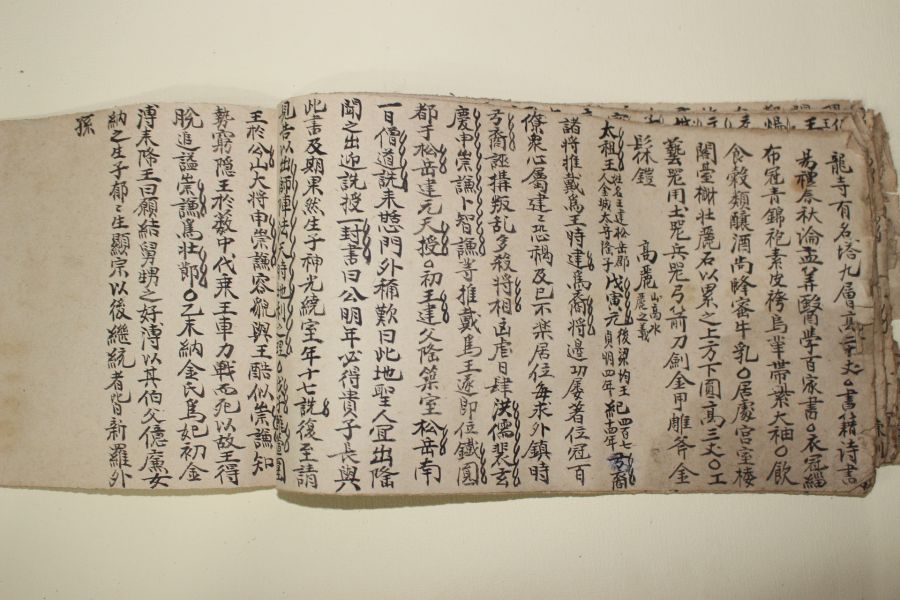 龍寺有名塔九層高二十丈○書籍詩書
易禮春秋論孟筭醫學百家書○衣冠緇
布冠青錦袍素皮袴烏革帶紫大袖○飮
食穀類釀酒尚蜂蜜牛乳○居處宮室樓
閣臺榭壯麗石以累之上方下圓高三丈○工
藝器用土器兵器弓箭刀劍金甲雕斧金
髹鎧
高麗 山高水麗之義
太祖王 姓名王建松岳郡人金城太守隆子 戊寅元 後梁均王貞明四年 紀四百七
諸將推戴爲王時建爲裔將邊功屢著位冠百
僚衆心屬建建恐禍及已不樂居位每求外鎭時
弓裔誣搆叛乱多殺將相凶虐日肆洪儒裴玄
慶申崇謙卜智謙等推戴爲王遂卽位鐵圓
都于松岳建元天授○初王建父隆築室松岳南
一日僧道詵來憇門外稱歎曰此地聖人宜出隆
聞之出迎詵授一封書曰公明年必得貴子長與
此書及期果然生子神光繞室年十七詵復至請
見告以出師陣法天時地利之
王於公山大將申崇謙容貌與王酷似崇謙知
勢窮隱王於薮中代乘王車力戰而死以故王得
脫追謚崇謙爲壯節○乙未納金氏爲妃初金
溥來降王曰願結舅甥之好溥以其伯父億廉女
納之生子郁郁生顯宗以後繼統者皆新羅外
孫